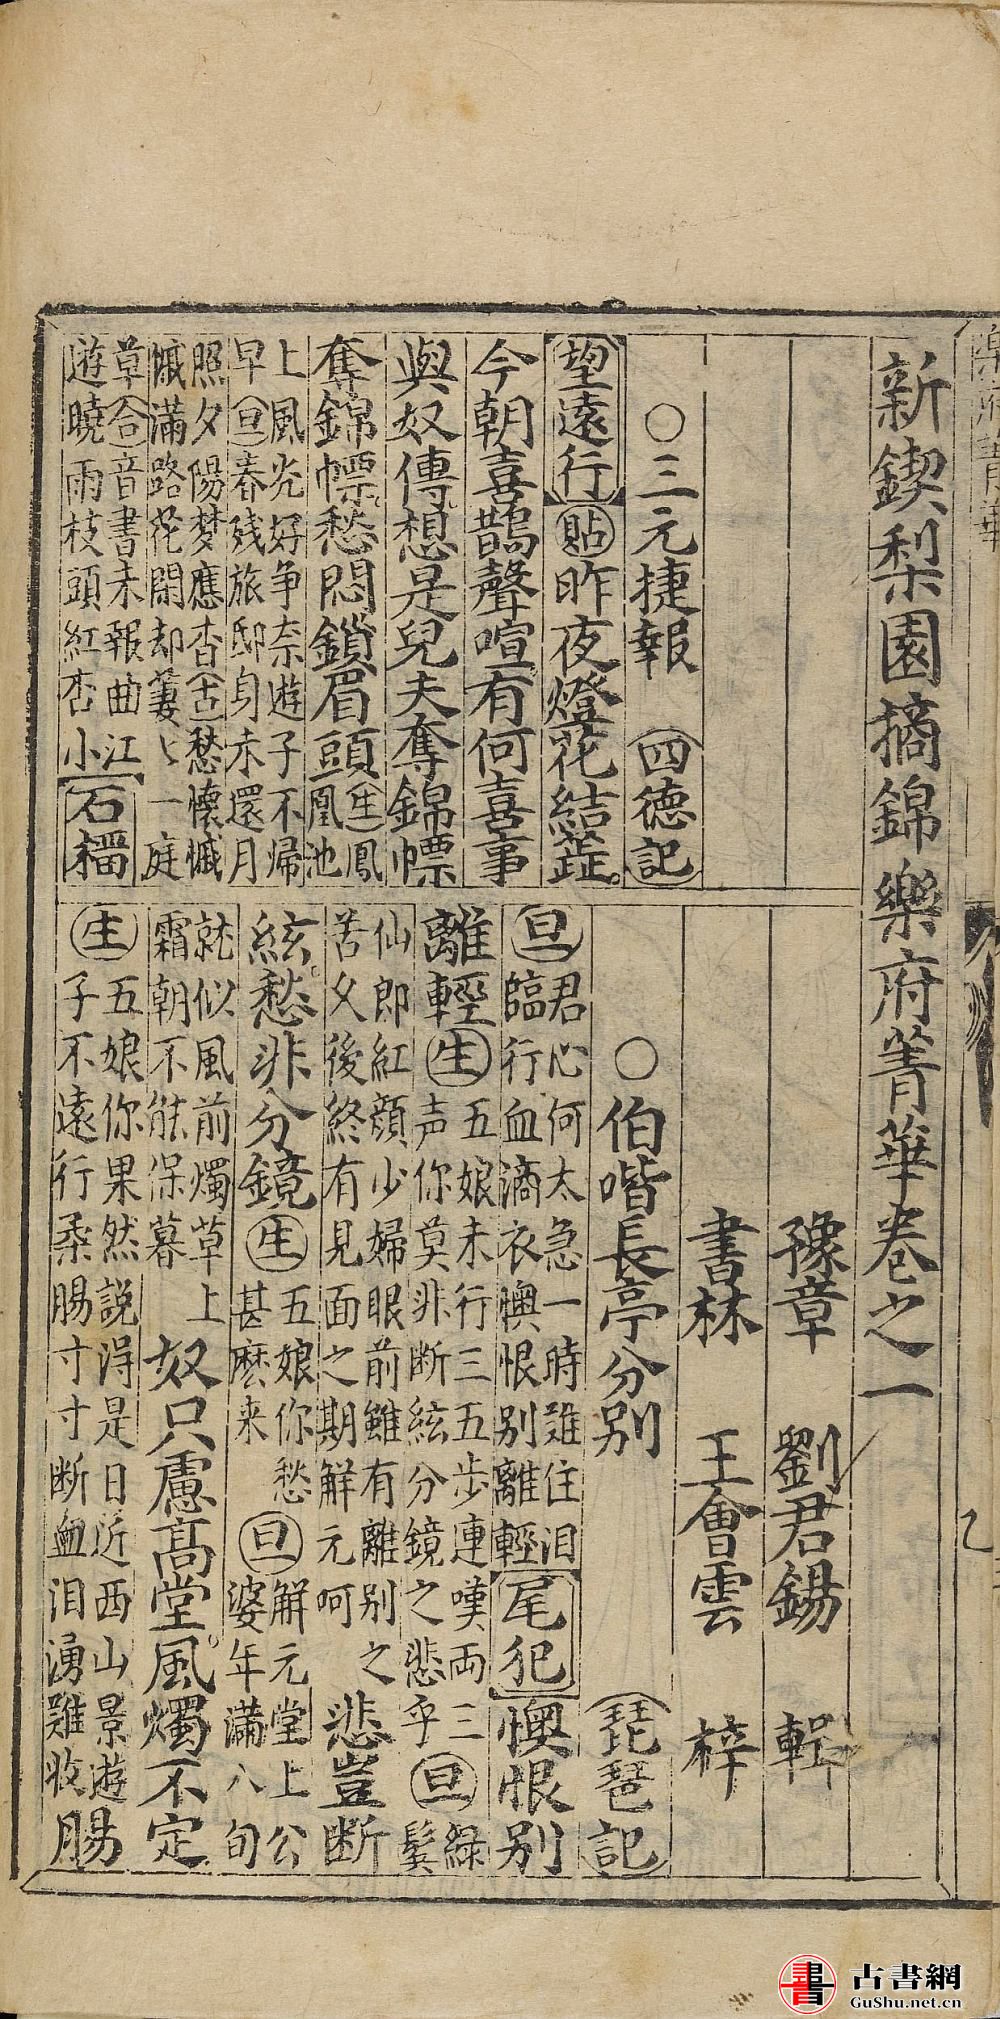 新鍥梨園摘錦樂府菁華卷之一
豫章 劉君錫 輯
書林 王會雲 梓
○三元捷報 四德記
望遠行 貼 昨夜燈花結蕋
今朝喜鵲聲喧有何喜事
與奴傳想是兒夫奪錦幖
奪錦幖愁悶鎖眉頭 生 鳳
凰池
上風光好争奈遊子不歸
早 旦 春殘旅邸身未還月
照夕陽梦應杏 占 愁懷慽
慽滿路花開却萋〻一庭
草 合 音書未報曲江
遊曉雨枝頭紅杏小 石榴
○伯喈長亭分别 琵琶記
旦 君心何太急一時難住泪
臨行血滴衣懊恨别離輕 尾犯 懊恨别
離輕 生 五娘未行三五步連嘆両三
声你莫非断絃分鏡之悲乎 旦 綠
鬓
仙郎紅顔少婦眼前雖有離别之
苦久後終有見面之期解元呵 悲豈断
絃愁非分鏡 生 五娘你愁
甚麽来 旦 解元堂上公
婆年滿八旬
就似風前燭草上
霜朝不能保暮 奴只慮高堂風燭不定
生 五娘你果然說得是日近西山景遊
子不遠行柔腸寸寸断血泪湧難收 腸
古書網
GuShu.net.cn